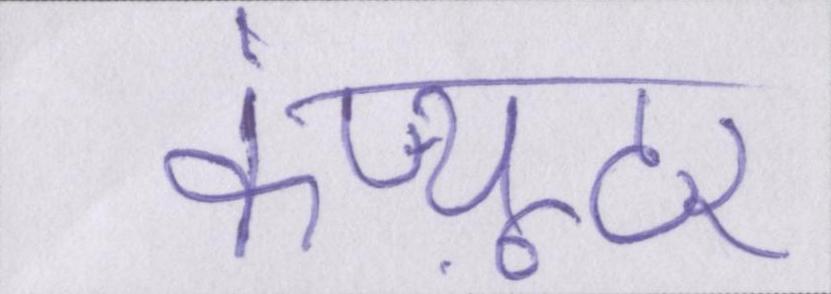 कंप्यूटर